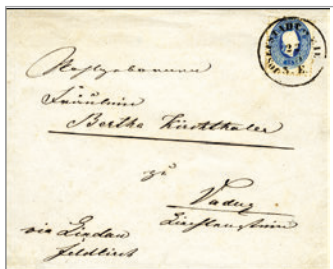 Hochgeborenen
Fräulein
Bertha Kirchthaler
zu
Vaduz
Liechtenstein
via Lindau
Feldkirch